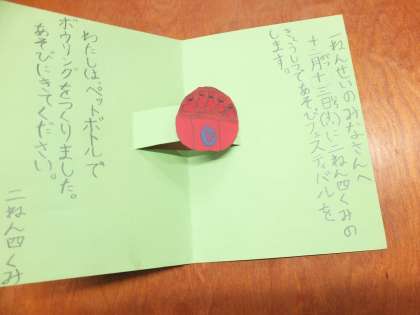 一ねんせいのみなさんへ
十二月十三日(火)に二ねん四くみの
きょうしつであそびフェスティバルを
します。
わたしは、ペットボトルで
ボウリングをつくりました。
あそびにきてください。
二ねん四くみ